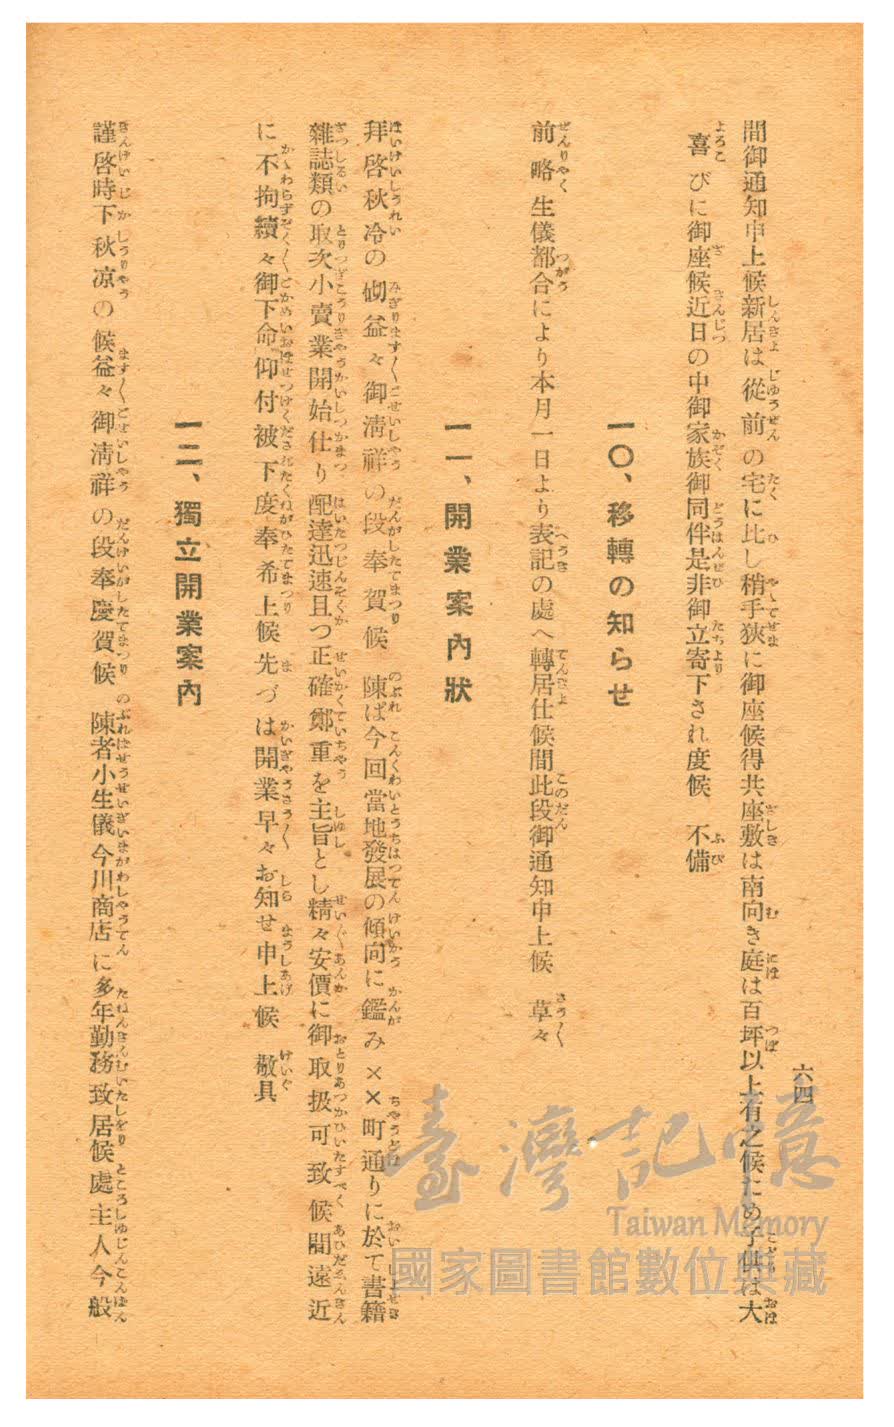 六四
間御通知申上候新居は從前の宅に比し稍手狹に御座候得共座敷は南向き庭は百坪以上有之候ため子供は大
喜びに御座候近日の中御家族御同伴是非御立寄下され度候　不備
一〇、移轉の知らせ
前略生儀都合により本月一日より表記の處へ轉居仕候間此段御通知申上候　草々
一一、開業案內狀
拜啓秋冷の砌益々御淸祥の段奉賀候　陳ば今回當地發展の傾向に鑑み××町通りに於て書籍
雜誌類の取次小賣業開始仕り配達迅速且つ正確鄭重を主旨とし精々安價に御取扱可致候間遠近
に不拘續々御下命仰付被下度奉希上候先づは開業早々お知せ申上候　敬具
一二、獨立開業案內
謹啓時下秋凉の候益々御淸祥の段奉慶賀候　陳者小生儀今川商店に多年勤務致居候處主人今般
臺灣記憶
Taiwan Memory
國家圖書館數位典藏